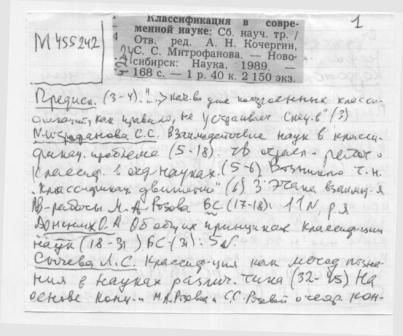 1
М 455242
Классификация в совре-
менной науке: Сб. науч. тр. /
Отв. ред. А. Н. Кочергин,
С. С. Митрофанова. — Ново-
сибирск: Наука, 1989. —
168 с. — 1 р. 40 к. 2 150 экз.
Предисл. (3-4). классифи-
как правило, не устраивает спец-в" (3)
Митрофанова С.С. Взаимодействие наук в класси-
фикац. проблема (5-18).
классиф. в отд. науках. (5-6) Возникло т.н.
"Классификац. движение" (6) 3 этапа взаимод-я
работы М.А. Розова БС (17-18): 11 N
Об общих принципах классиф-ции
наук (18-31) БС (31): 5 N.
Сычева Л.С. Классиф-ция как метод позна-
ния в науках различ. типа (32-45) На
основе конц-и М.А. Розова и С.С. Розовой